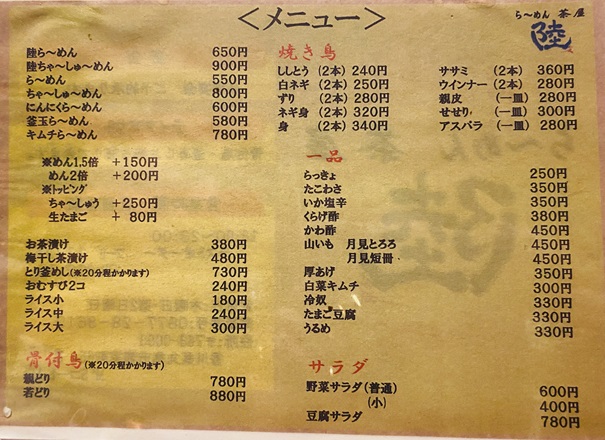 ＜メニュー＞
ら～めん 茶屋
陸
陸ら～めん 650円
陸ちゃ～しゅ～めん 900円
ら～めん 550円
ちゃ～しゅ～めん 800円
にんにくら～めん 600円
釜玉ら～めん 580円
キムチら～めん 780円
※めん1.5倍 +150円
めん2倍 +200円
※トッピング
ちゃ～しゅう +250円
生たまご + 80円
お茶漬け 380円
梅干し茶漬け 480円
とり釜めし(※20分程かかります) 730円
おむすび2コ 240円
ライス小 180円
ライス中 240円
ライス大 300円
骨付鳥(※20分程かかります)
親どり 780円
若どり 880円
焼き鳥
ししとう (2本) 240円
白ネギ (2本) 250円
ずり (2本) 280円
ネギ身 (2本) 320円
身 (2本) 340円
ササミ (2本) 360円
ウインナー (2本) 280円
親皮 (一皿) 280円
せせり (一皿) 300円
アスパラ (一皿) 280円
一品
らっきょ 250円
たこわさ 350円
いか塩辛 350円
くらげ酢 380円
かわ酢 450円
山いも 月見とろろ 450円
月見短冊 450円
厚あげ 350円
白菜キムチ 300円
冷奴 330円
たまご豆腐 330円
うるめ 330円
サラダ
野菜サラダ(普通) 600円
(小) 400円
豆腐サラダ 780円